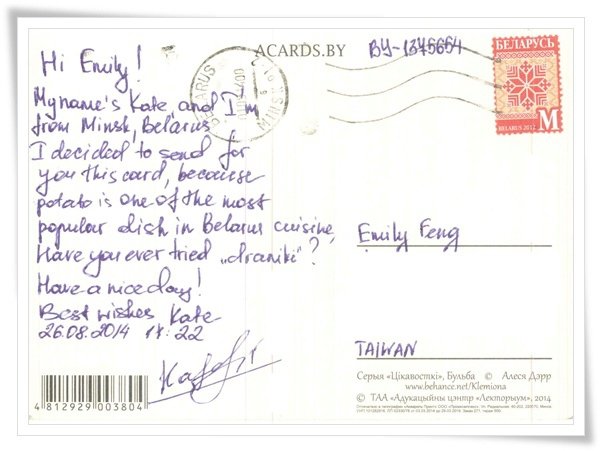 ACARDS.BY
BY-1375654
БЕЛАРУСЬ
BELARUS 2012
M
BELARUS
MINSK
Hi Emily!
My name's Kate, and I'm
from Minsk, Belarus
I decided to send for
you this card, because
potato is one of the most
popular dish in Belarus cuisine,
Have you ever tried „draniki"?
Have a nice day!
Best wishes Kate
26.08.2014 17:22
Emily Feng
TAIWAN
4 812929 003804
Серыя «Цікавосткі», Бульба © Алеся Дэрр
www.behance.net/Klemiona
© ТАА «Адукацыйны цэнтр «Лекторыум», 2014